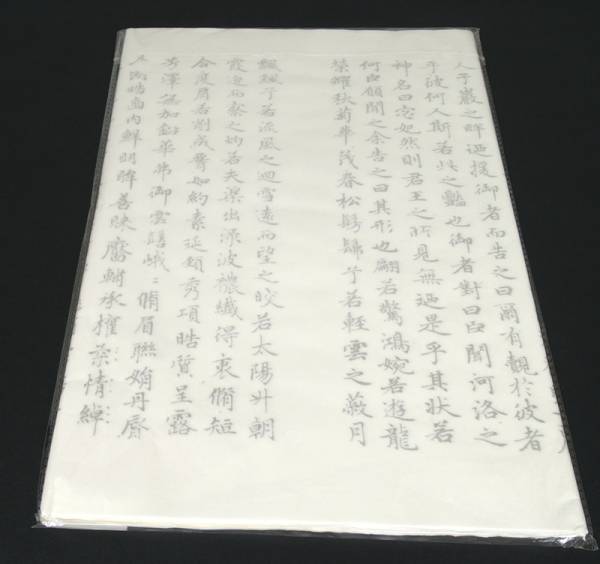 人于巖之畔迺援御者而告之曰爾有覿於彼者
乎彼何人斯若此之豔也御者對曰臣聞河洛之
神名曰宓妃然則君王之所見無迺是乎其狀若
何臣願聞之余告之曰其形也翩若驚鴻婉若遊龍
榮曜秋菊華茂春松髣髴兮若輕雲之蔽月
飄颻兮若流風之迴雪遠而望之皎若太陽升朝
霞迫而察之灼若夫渠出淥波襛纖得衷脩短
合度肩若削成腰如約素延頸秀項皓質呈露
芳澤無加鉛華弗御雲髻峨〻脩眉聯娟丹脣
外朗皓齒內鮮明眸善睞靨輔承權情綽